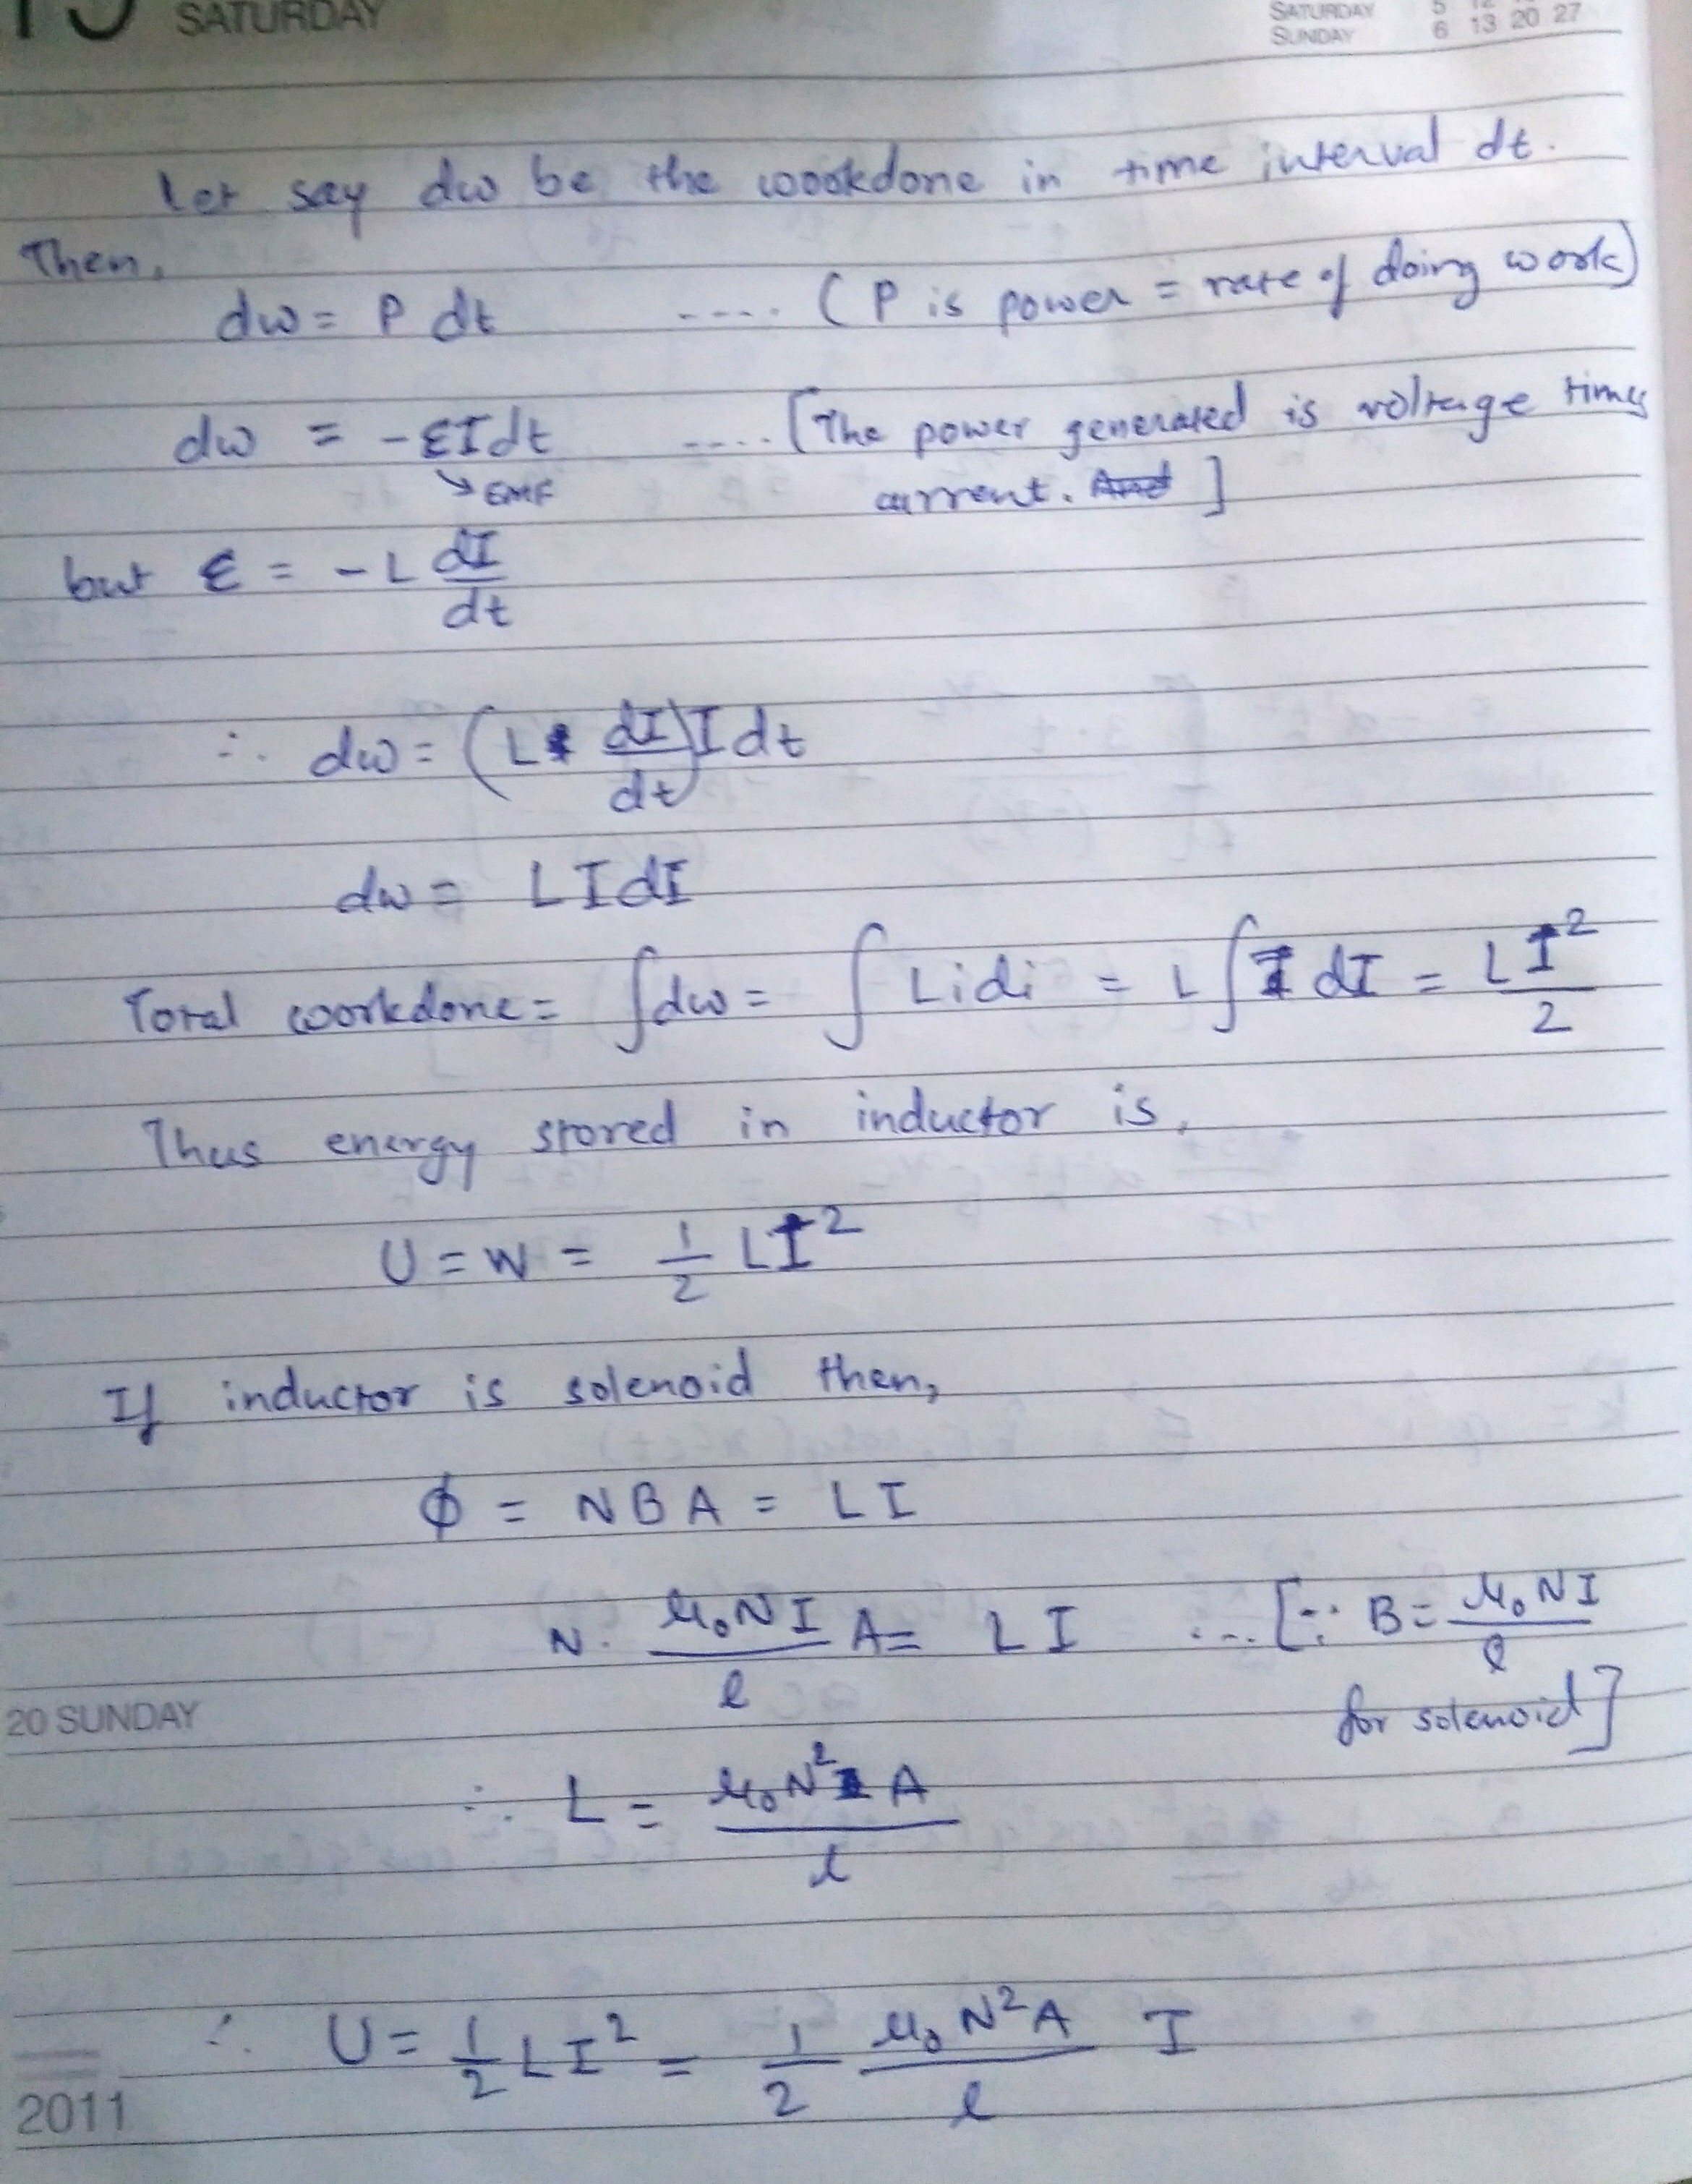 19 SATURDAY
SATURDAY 5 12
SUNDAY 6 13 20 27
Let say dw be the workdone in time interval dt.
Then,
dw = P dt ..... (P is power = rate of doing work)
dw = -εIdt .... [The power generated is voltage times
↘ EMF current. And ]
but ε = -L dI/dt
∴ dw = (L dI/dt) I dt
dw = LIdI
Total workdone = ∫dw = ∫Lidi = L∫I dI = L I²/2
Thus energy stored in inductor is,
U = W = 1/2 LI²
If inductor is solenoid then,
ϕ = NBA = LI
N. μ₀NI/l A = LI ... [∵ B = μ₀NI/l
20 SUNDAY for solenoid]
∴ L = μ₀N²A/l
∴ U = 1/2 LI² = 1/2 μ₀N²A/l I
2011